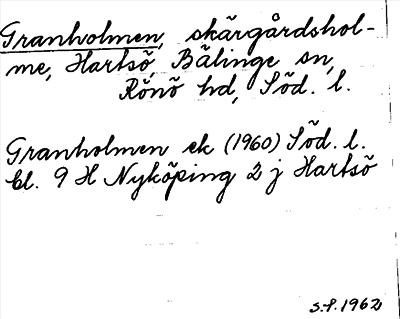 Granholmen, skärgårdshol-
me, Hartsö, Bälinge sn,
Rönö hd, Söd. l.
Granholmen ek (1960) Söd. l.
bl. 9 H Nyköping 2 j Hartsö
S.P. 1962